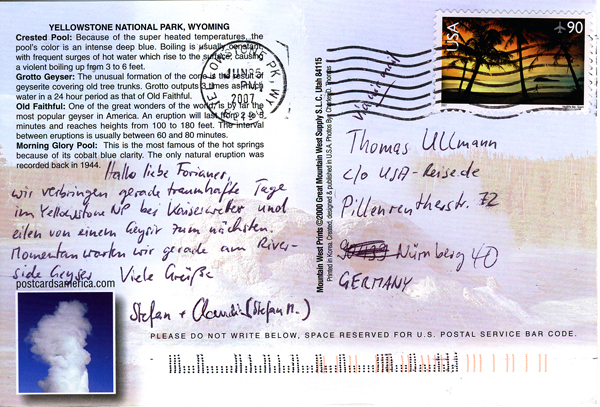 YELLOWSTONE NATIONAL PARK, WYOMING
Crested Pool: Because of the super heated temperatures, the
pool's color is an intense deep blue. Boiling is usually constant,
with frequent surges of hot water which rise to the surface, causing
a violent boiling up from 3 to 6 feet.
Grotto Geyser: The unusual formation of the cone is the result of
geyserite covering old tree trunks. Grotto outputs 3 times as much
water in a 24 hour period as that of Old Faithful.
Old Faithful: One of the great wonders of the world, is by far the
most popular geyser in America. An eruption will last from 2 to 5
minutes and reaches heights from 100 to 180 feet. The interval
between eruptions is usually between 60 and 80 minutes.
Morning Glory Pool: This is the most famous of the hot springs
because of its cobalt blue clarity. The only natural eruption was
recorded back in 1944.
Hallo liebe Forianer,
wir verbringen gerade traumhafte Tage
im Yellowstone NP bei Kaiserwetter und
eilen von einem Geysir zum nächsten.
Momentan warten wir gerade am River-
side Geyser Viele Grüße
Stefan + Claudia (Stefan M.)
postcardsamerica.com
YELLOWSTONE PK. WY
JUN 25
PM
2007
Mountain West Prints ©2000 Great Mountain West Supply S.L.C. Utah 84115
Printed in Korea. Created, designed & published in U.S.A. Photos By: Charles D. Thomas
USA
90
Thomas Ullmann
c/o USA-Reise.de
Pillenreutherstr. 72
Nürnberg 40
GERMANY
PLEASE DO NOT WRITE BELOW, SPACE RESERVED FOR U.S. POSTAL SERVICE BAR CODE.